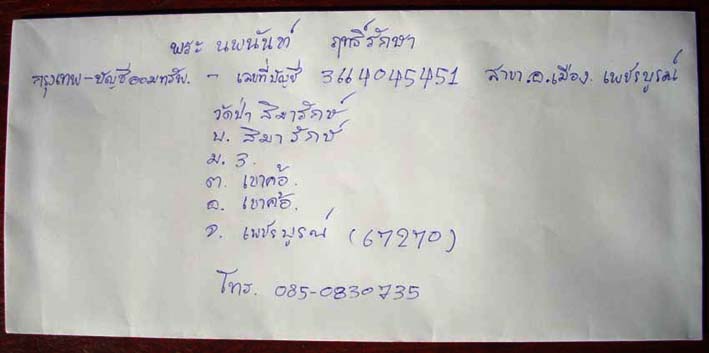 พระ นพนันท์ ฤทธิ์รักษา
กรุงเทพ-บัญชีออมทรัพ. - เลขที่บัญชี 3114045451 สาขา.อ.เมือง. เพชรบูรณ์
วัดป่า สิมารักษ์
บ. สิมารักษ์
ม. 3.
ต. เขาค้อ.
อ. เขาค้อ.
จ. เพชรบูรณ์ (67270)
โทร. 085-0830735